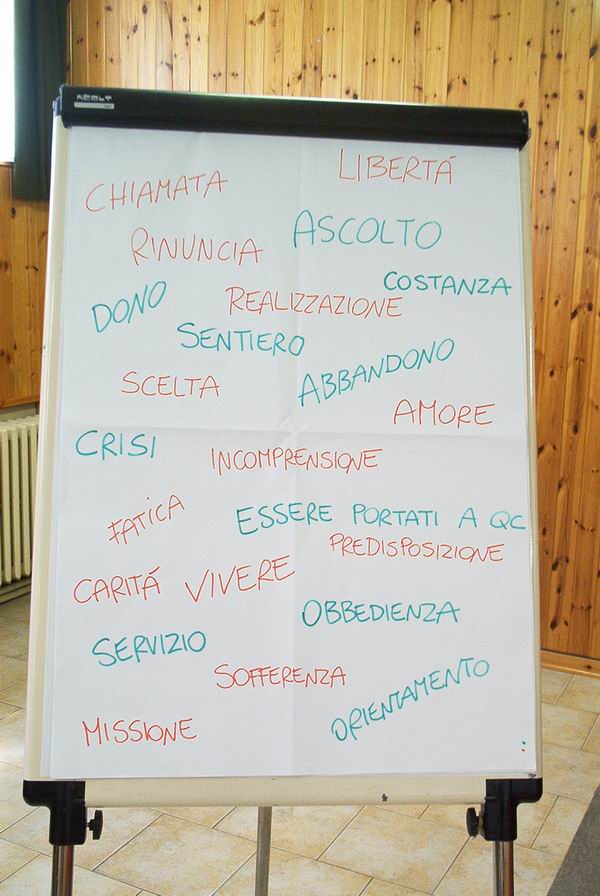 CHIAMATA
LIBERTÁ
RINUNCIA
ASCOLTO
COSTANZA
DONO
REALIZZAZIONE
SENTIERO
ABBANDONO
SCELTA
AMORE
CRISI
INCOMPRENSIONE
FATICA
ESSERE PORTATI A QC
PREDISPOSIZIONE
CARITÁ
VIVERE
OBBEDIENZA
SERVIZIO
SOFFERENZA
ORIENTAMENTO
MISSIONE